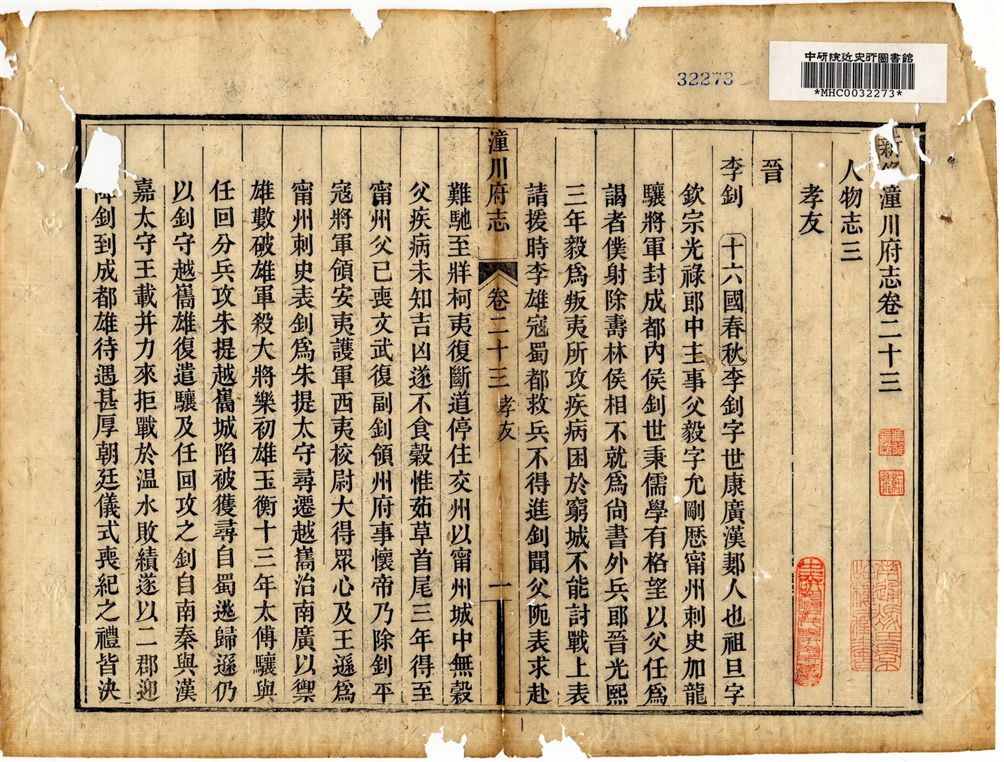 中研院近史所圖書館
*MHC0032273*
32273
新修潼川府志卷二十三
人物志三
孝友
晉
李釗 十六國春秋李釗字世康廣漢郪人也祖旦字
欽宗光祿郎中主事父毅字允剛歷甯州刺史加龍
驤將軍封成都內侯釗世秉儒學有格望以父任爲
謁者僕射除壽林侯相不就爲尙書外兵郎晉光熙
三年毅爲叛夷所攻疾病困於窮城不能討戰上表
請援時李雄寇蜀都救兵不得進釗聞父阨表求赴
潼川府志 卷二十三 孝友 一
難馳至牂柯夷復斷道停住交州以甯州城中無穀
父疾病未知吉凶遂不食穀惟茹草首尾三年得至
甯州父已喪文武復副釗領州府事懷帝乃除釗平
寇將軍領安夷護軍西夷校尉大得眾心及王遜爲
甯州刺史表釗爲朱提太守尋遷越嶲治南廣以禦
雄數破雄軍殺大將樂初雄玉衡十三年太傅驤與
任回分兵攻朱提越嶲城陷被獲尋自蜀逃歸遜仍
以釗守越嶲雄復遣驤及任回攻之釗自南秦與漢
嘉太守王載并力來拒戰於温水敗績遂以二郡迎
降釗到成都雄待遇甚厚朝廷儀式喪紀之禮皆決